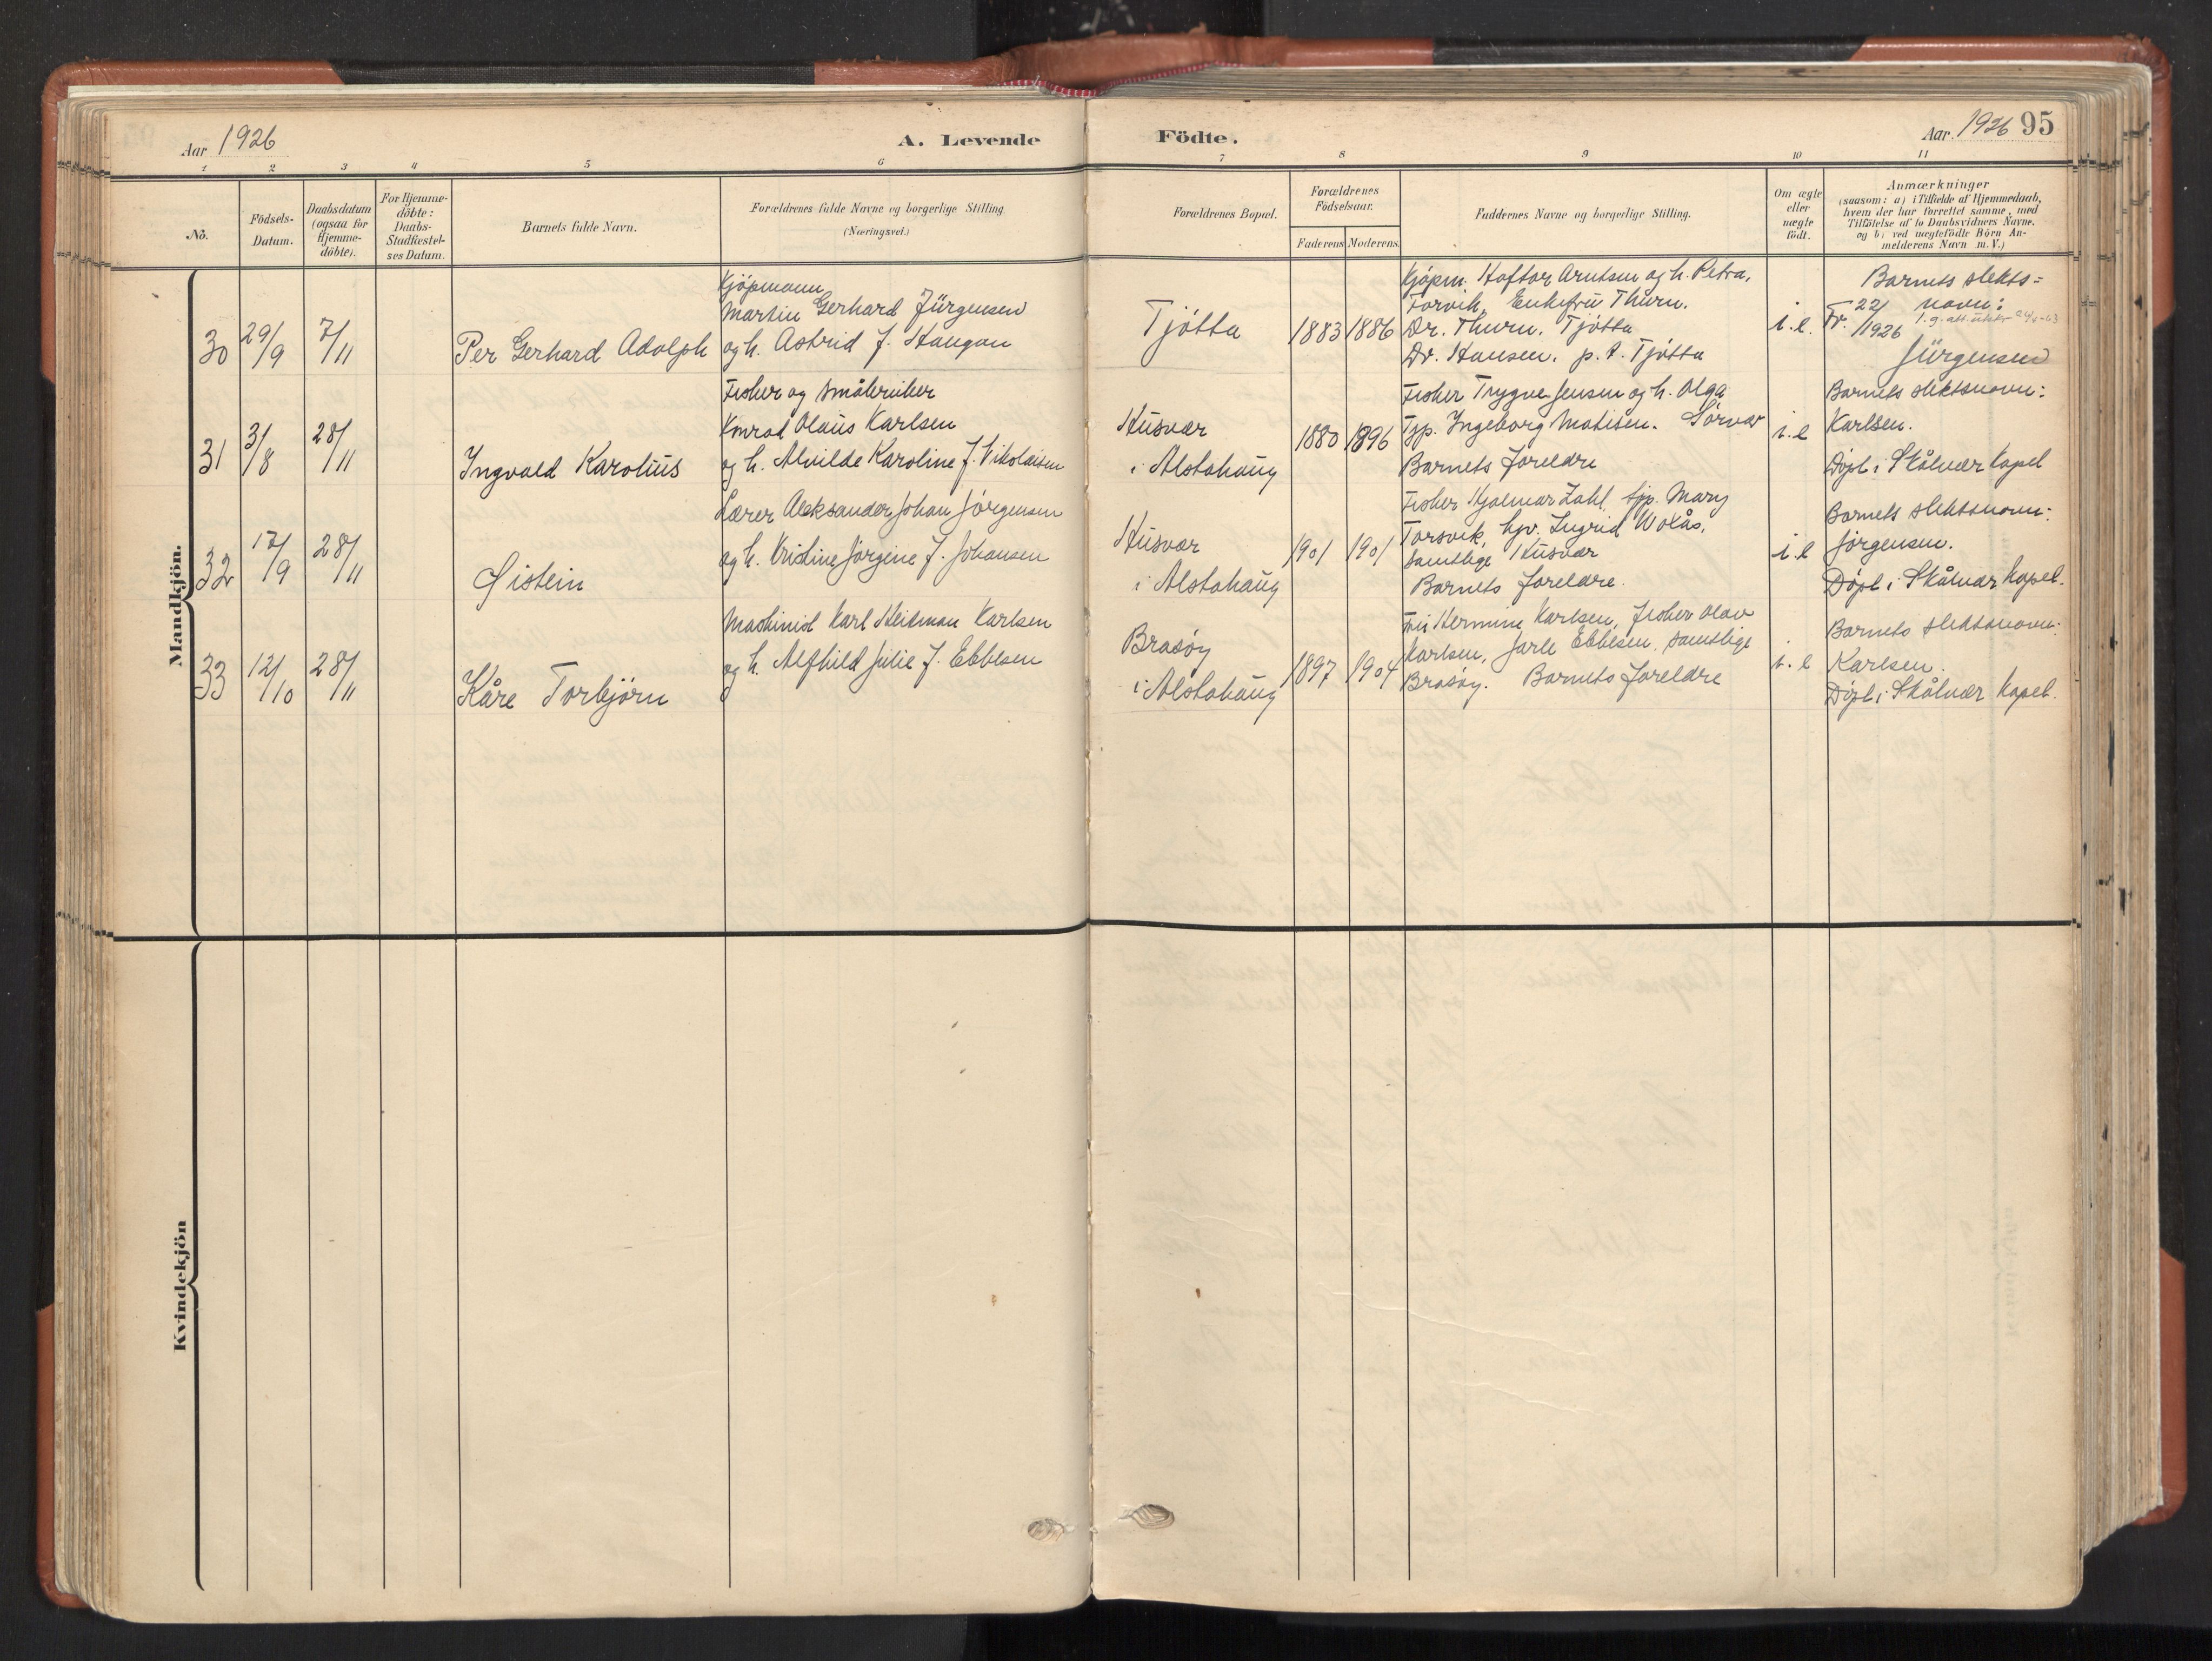 Aar 1926
A. Levende Födte.
Aar. 1926 95
1 2 3 4 5 6 7 8 9 10 11
No.
Födsels-
Datum.
Daabsdatum
(ogsaa for
Hjemme-
döbte).
For Hjemme-
döbte:
Daabs-
Stadfæstel-
ses Datum.
Barnets fulde Navn.
Forældrenes fulde Navne og borgerlige Stilling.
(Næringsvei.)
Forældrenes Bopæl.
Forældrenes
Födselsaar.
Faderens Moderens
Faddernes Navne og borgerlige Stilling.
Om ægte
eller
uægte
födt.
Anmærkninger
(saasom: a) i Tilfælde af Hjemmedaab,
hvem der har forrettet samme, med
Tilföielse af to Daabsvidners Navne.
og b) ved uægtefödte Börn An-
melderens Navn m. V.)
Mandkjön.
30 29/9 7/11
Per Gerhard Adolph
Kjöpmann
Martin Gerhard Jürgensen
og h. Astrid f. Haugan
Tjötta
1883 1886
Kjöpm. Haftor Arntsen og h. Petra,
Forvik, Enkefrü Thurn.
Dr. Thurn. Tjötta
Dr. Hansen. p. t. Tjötta
i. e.
Barnets slekts=
navn:
Fr. 22/1 1926
Jürgensen
31 3/8 28/11
Ingvald Karolius
Fisker og småbruker
Konrad Olaus Karlsen
og h. Alvilde Karoline f. Nikolaisen
Husvær
i Alstahaug
1880 1896
Fisker Trygve Jensen og h. Olga
Tjp. Ingeborg Matisen. Sörvær
Barnets foreldre
i. e
Barnets slektsnavn:
Karlsen.
Döpt i Skålvær Kapel
32 17/9 28/11
Öistein
Lærer Aleksander Johan Jörgensen
og h. Kristine Jörgine f. Johansen
Husvær
i Alstahaug
1901 1901
Fisker Hjalmar Zahl, tjp. Mary
Torsvik, hjv. Ingrid Wolås,
samtlige Husvær
Barnets foreldre.
i. e
Barnets slektsnavn:
Jörgensen.
Döpt i Skålvær kapel.
33 12/10 28/11
Kåre Torbjörn
Maskinist Karl Heitman Karlsen
og h. Alfhild Julie f. Ebbesen
Brasöy
i Alstahaug
1897 1904
Frü Hermine Karlsen, Fisker Olav
Karlsen, Jarle Ebbesen, samtlige
Brasöy. Barnets foreldre
i. e
Barnets slektsnavn:
Karlsen.
Döpt i Skålvær kapel.
Kvindekjön